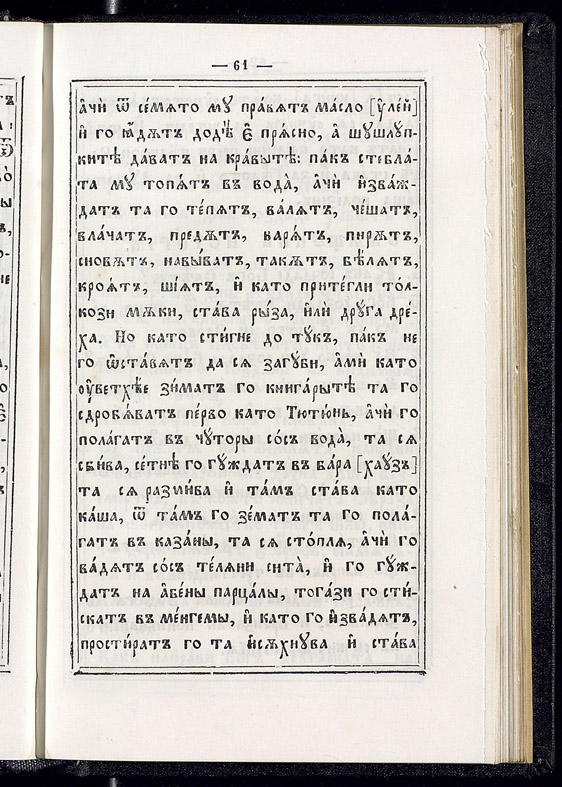 — 61 —
а҆чѝ ѿ се́мѧто мꙋ пра́вѧтъ ма́сло [ᲂу҆ле́й]
и҆ го ꙗ҆дѫ́тъ додѣ̀ є҆ прѧ́сно, а҆ шꙋшлꙋп-
китѣ̀ да́ватъ на кра́вытѣ: па́къ стебла́-
та мꙋ топѧ́тъ въ вода̀, а҆чѝ и҆зва́ж-
датъ та го те́пѧтъ, ва́лѧтъ, че́шатъ,
вла́чатъ, предѫ́тъ, варѧ́тъ, пирѫ́тъ,
сновѫ́тъ, навы́ватъ, такѫ́тъ, бѣ́лѧтъ,
кроѧ́тъ, шїѧ́тъ, и҆ като прите́гли то́л-
кози мѫ́ки, ста́ва ры́за, и҆лѝ дрꙋ́га дре́-
ха. Но като сти́гне до тꙋ́къ, па́къ не
го ѡ҆ста́вѧтъ да сѧ загꙋ́би, а҆мѝ като
ᲂу҆ветхѣ́е зи́матъ го книга́рытѣ та го
сдробѧ́ватъ пе́рво като Тютю́нь, а҆чѝ го
пола́гатъ въ чꙋ́торы со́съ вода̀, та сѧ
сби́ва, се́тнѣ го гꙋ́ждатъ въ ба́ра [ха́ꙋзъ]
та сѧ разми́ва и҆ та́мъ ста́ва като
ка́ша, ѿ та́мъ го зе́матъ та го пола́-
гатъ въ каза́ны, та сѧ сто́плѧ, а҆чѝ го
ва́дѧтъ со́съ те́лѧни сита̀, и҆ го гꙋ́ж-
датъ на а҆бе́ны парца́лы, тога́зи го сти́-
скатъ въ ме́нгемы, и҆ като го и҆зва́дѧтъ,
прости́ратъ го та и҆сѫ́хнꙋва и҆ ста́ва